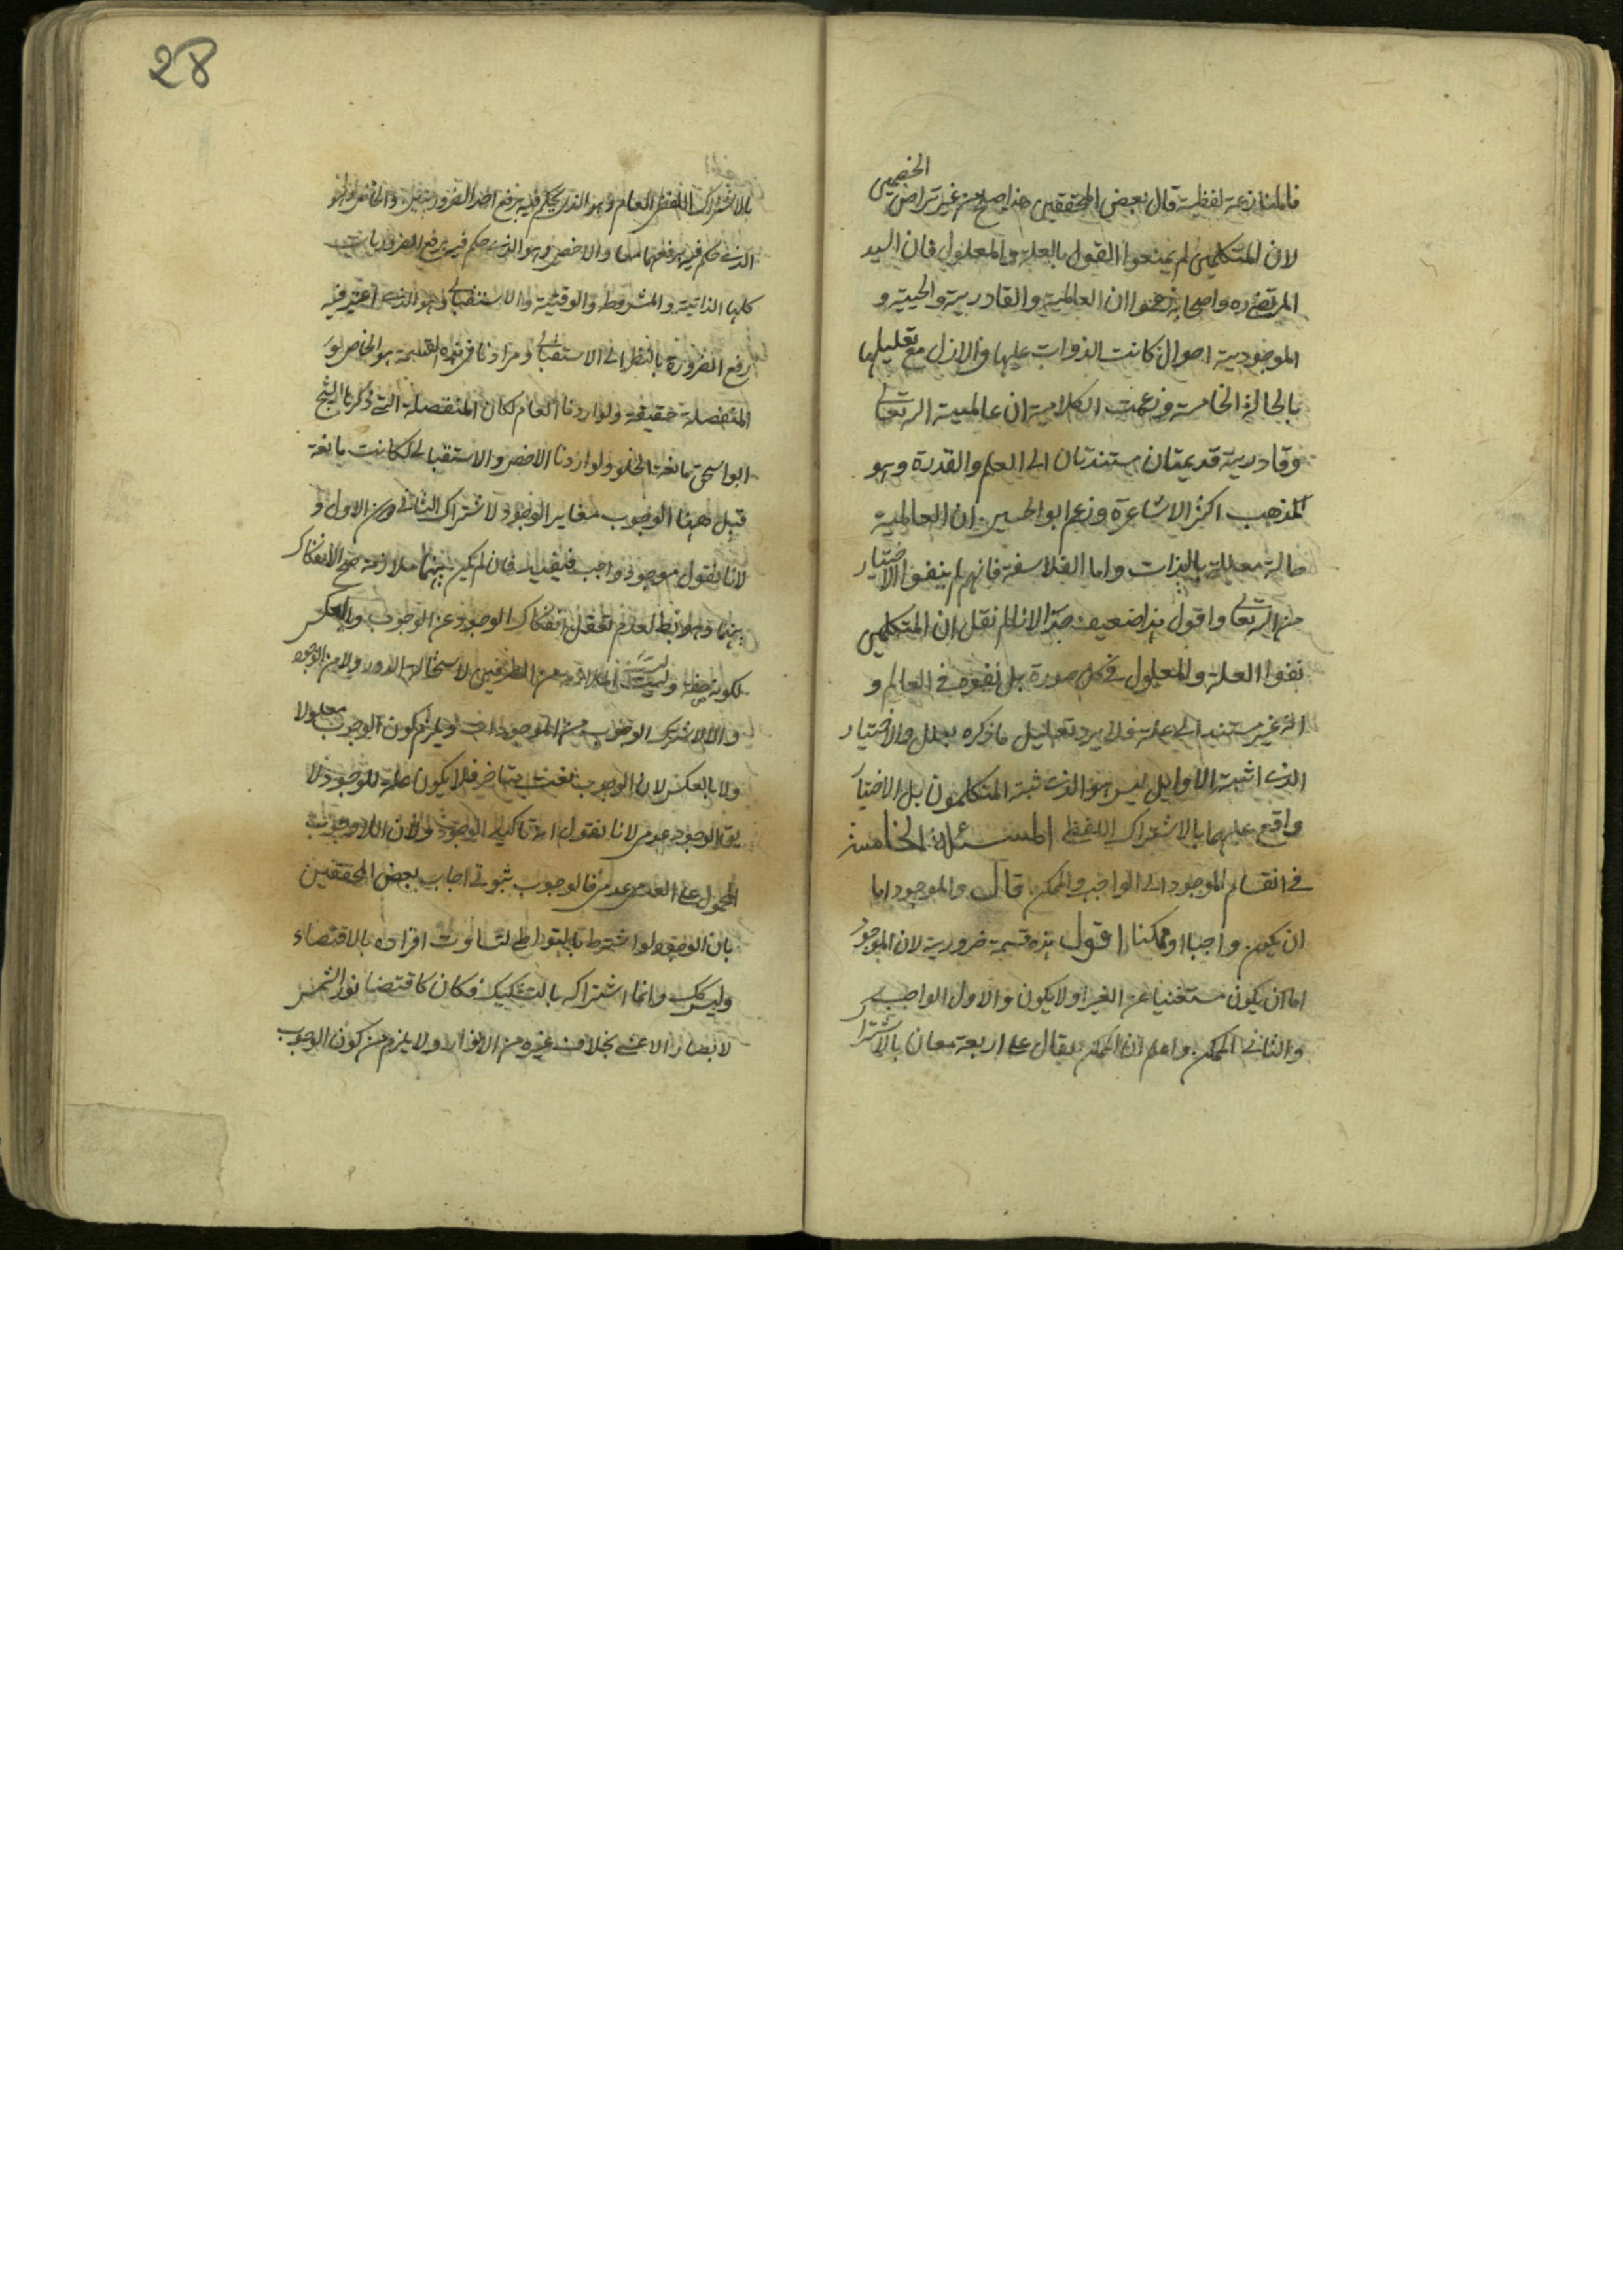 فالمنازعة لفظية قال بعض المحققين هذا صلح من غير تراض الخصمين
لان المتكلمين لم يمنعوا القول بالعلة والمعلول فان السيد
المرتضى ره واصحابه زعموا ان العالمية والقادرية والحيية و
الموجودية احوال كانت الذوات عليها في الازل مع تعليلها
بالحالة الخامسة وزعمت الكلامية ان عالمية الله تعالى
وقادرية قديمتان مستندتان الى العلم والقدرة وهو
مذهب اكثر الاشاعرة وزعم ابو الحسين ان العالمية
حالة معللة بالذات واما الفلاسفة فانهم لم ينفوا الاختيار
من الله تعالى واقول هذا ضعيف جدا لانا لم نقل ان المتكلمين
نفوا العلة والمعلول في كل صورة بل نفوه في العالم و
انه غير مستند الى علة فلا يرد تعليل ما ذكره بعلل والاختيار
الذي اثبته الاوايل ليس هو الذي ثبته المتكلمون بل الاختيار
واقع عليهما بالاشتراك اللفظي المسئلة الخامسة
في انقسام الموجود الى الواجب والممكن قال والموجود اما
ان يكون واجبا او ممكنا اقول هذه قسمة ضرورية لان الموجود
اما ان يكون مستغنيا عن الغير اولا يكون والاول الواجب
والثاني الممكن واعلم ان الممكن يقال على اربعة معان بالاشتراك
28
بالاشتراك اللفظي العام وهو الذي يحكم فيه برفع احد الضرورتين والخاص وهو
الذي حكم فيه برفعهما معا والاخص وهو الذي حكم فيه برفع الضروريات
كلها الذاتية والمشروطة والوقتية والاستقبالي وهو الذي اعتبر فيه
رفع الضرورة بالنظر الى الاستقبال ومرادنا في هذه القسمة هو الخاص
المنفصلة حقيقة ولو اردنا العام لكان المنفصلة التي ذكرها الشيخ
ابو اسحق مانعة الخلو ولو اردنا الاخص والاستقبالي لكانت مانعة
قيل هنا الوجوب مغاير الوجود لاشتراك الثاني دون الاول و
لانا نقول موجود واجب فنفيد فان لم يكن بينهما ملازمة صح الانفكاك
بينهما وهو باطل لعدم تعقل انفكاك الوجود عن الوجوب وبالعكس
لكونه صفة وليست الملازمة من الطرفين لاستحالة الدور ولا من الوجود
والا لاشترك الوجوب بين الموجودات ويلزم كون الوجوب معلولا
ولا بالعكس لان الوجوب نعت يتاخر فلا يكون علة للوجود لا
يق الوجوب عدمي لانا نقول انه تاكيد الوجود ولان اللاوجوب
المحمول على العدمي عدمي فالوجوب ثبوتي اجاب بعض المحققين
بان الوجود لو اشترط بالتواطي لتساوت افراده بالاقتضاء
وليس كك وانما اشتراكه بالتشكيك فكان كاقتضا نور الشمس
لابصار الاعشى بخلاف غيره من الانوار ولا يلزم من كون الوجوب